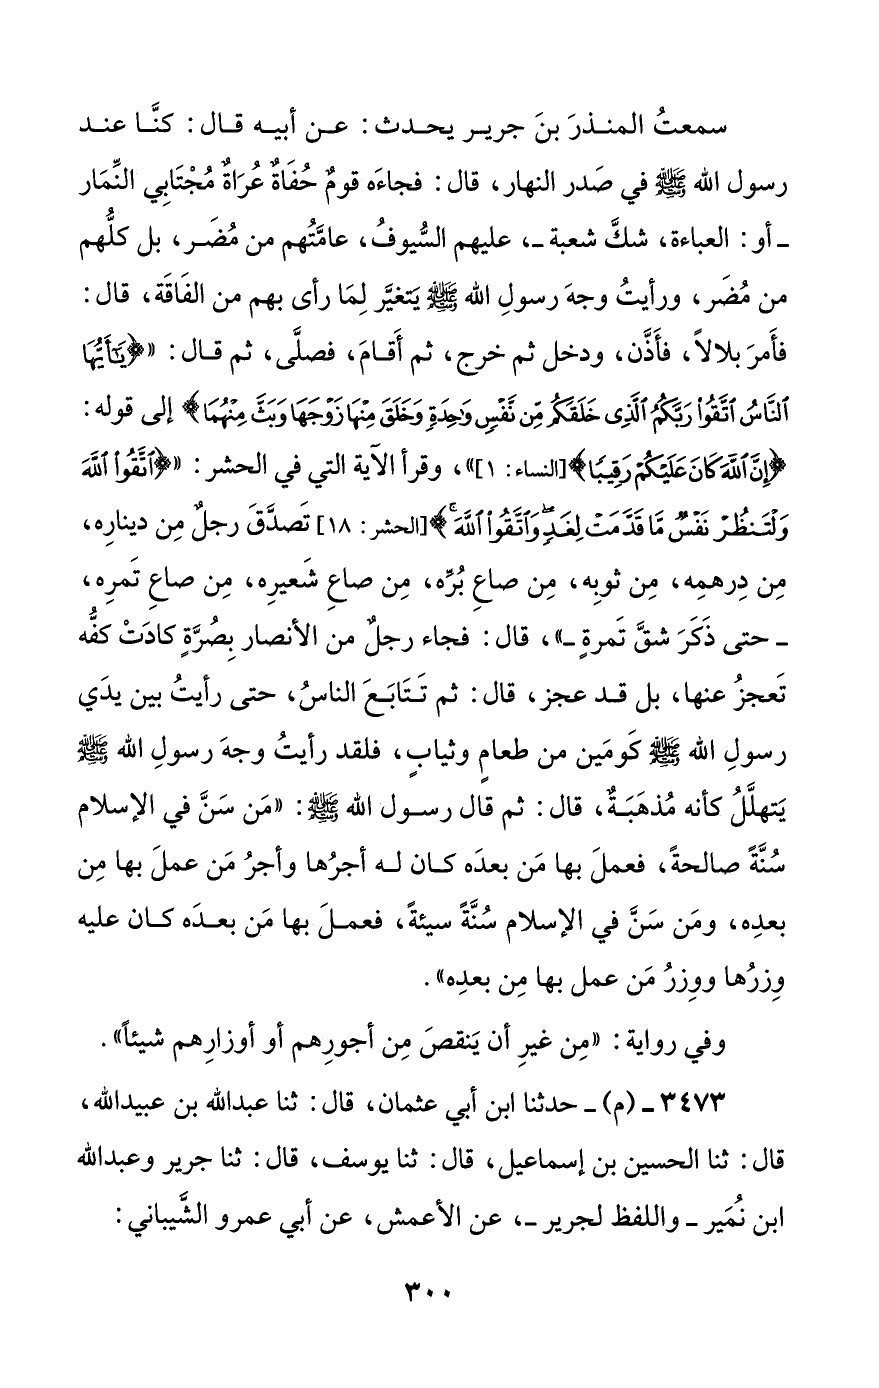 سمعتُ المنـذرَ بنَ جريـر يحـدث: عـن أبيـه قـال: كنَّـا عنـد
رسول الله ﷺ في صَدر النهار، قال: فجاءَه قومٌ حُفَاةٌ عُرَاةٌ مُجْتَابي النِّمَار
ـ أو: العباءة، شكَّ شعبة ـ، عليهم السُّيوفُ، عامَّتُهم من مُضَر، بل كلُّهم
من مُضَر، ورأيتُ وجهَ رسولِ الله ﷺ يَتغيَّر لِمَا رأى بهم من الفَاقَة، قال:
فأَمرَ بلالاً، فأَذَّن، ودخل ثم خرج، ثم أَقَامَ، فصلَّى، ثم قـال: «﴿يَٰٓأَيُّهَا
ٱلنَّاسُ ٱتَّقُوا۟ رَبَّكُمُ ٱلَّذِى خَلَقَكُم مِّن نَّفْسٍ وَٰحِدَةٍ وَخَلَقَ مِنْهَا زَوْجَهَا وَبَثَّ مِنْهُمَا﴾ إلى قوله:
﴿إِنَّ ٱللَّهَ كَانَ عَلَيْكُمْ رَقِيبًا﴾[النساء: ١]»، وقرأ الآية التي في الحشر: «﴿ٱتَّقُوا۟ ٱللَّهَ
وَلْتَنظُرْ نَفْسٌ مَّا قَدَّمَتْ لِغَدٍ ۖ وَٱتَّقُوا۟ ٱللَّهَ ۚ﴾[الحشر: ١٨] تَصدَّقَ رجلٌ مِن دينارِه،
مِن دِرهمِه، مِن ثوبِه، مِن صاعِ بُرِّه، مِن صاعِ شَعيرِه، مِن صاعِ تَمرِه،
ـ حتى ذَكَرَ شقَّ تَمرةٍ ـ»، قال: فجاء رجلٌ من الأنصار بِصُرَّةٍ كادَتْ كفُّه
تَعجزُ عنها، بل قـد عجز، قال: ثم تَـتَابَـعَ الناسُ، حتى رأيتُ بين يدَي
رسولِ الله ﷺ كَومَين من طعامٍ وثيابٍ، فلقد رأيتُ وجهَ رسولِ الله ﷺ
يَتهلَّلُ كأنه مُذهَبَـةٌ، قال: ثم قال رسـول الله ﷺ: «مَن سَنَّ في الإسلام
سُنَّةً صالحةً، فعملَ بها مَن بعدَه كـان لـه أجرُها وأجرُ مَن عملَ بها مِن
بعدِه، ومَن سَنَّ في الإسلام سُنَّةً سيئةً، فعمـلَ بها مَن بعـدَه كـان عليه
وِزرُها ووِزرُ مَن عمل بها مِن بعدِه».
وفي رواية: «مِن غيرِ أن يَنقصَ مِن أجورِهم أو أوزارِهم شيئاً».
٣٤٧٣ ـ (م) ـ حدثنا ابن أبي عثمان، قال: ثنا عبدالله بن عبيدالله،
قال: ثنا الحسين بن إسماعيل، قال: ثنا يوسف، قال: ثنا جرير وعبدالله
ابن نُمَير ـ واللفظ لجرير ـ، عن الأعمش، عن أبي عمرو الشَّيباني:
٣٠٠